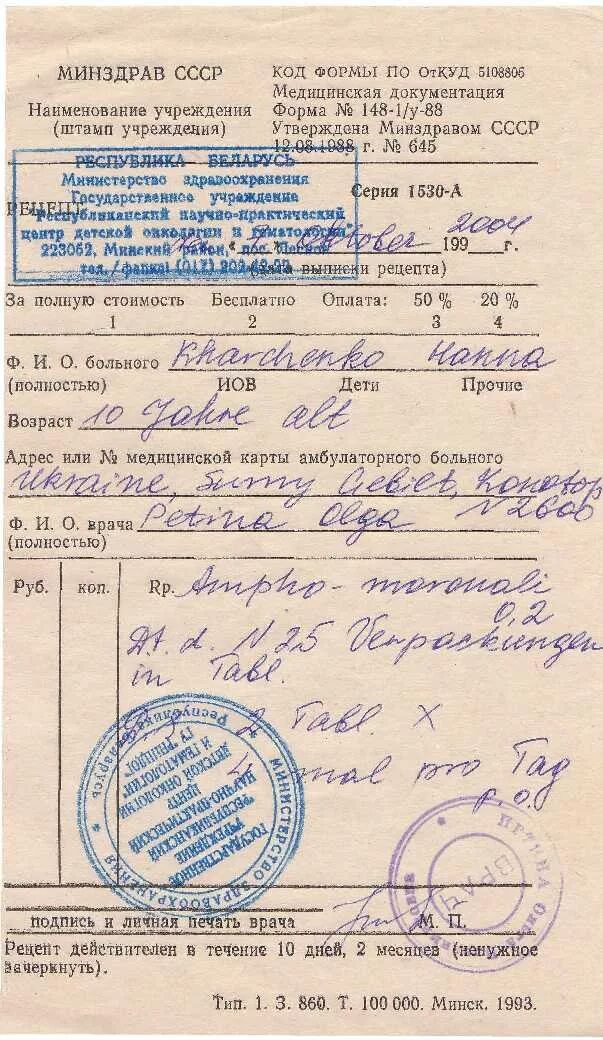 МИНЗДРАВ СССР
КОД ФОРМЫ ПО ОтКУД 5108806
Медицинская документация
Наименование учреждения
Форма № 148-1/у-88
(штамп учреждения)
Утверждена Минздравом СССР
12.08.1988 г. № 645
РЕСПУБЛИКА БЕЛАРУСЬ
Министерство здравоохранения
Государственное учреждение
"Республиканский научно-практический
центр детской онкологии и гематологии"
223052, Минский район, пос.
тел./факс (017)
Серия 1530-А
РЕЦЕПТ
" " Oktober 2004 199 г.
(дата выписки рецепта)
За полную стоимость Бесплатно Оплата: 50 % 20 %
1 2 3 4
Ф. И. О. больного Kharchenko Hanna
(полностью) ИОВ Дети Прочие
Возраст 10 Jahre alt
Адрес или № медицинской карты амбулаторного больного
Ukraine, Sumy Gebiet, Konotop
N 2600
Ф. И. О. врача Petina Olga
(полностью)
Руб. коп. Rp. Ampho-moronali
0,2
D.t.d. N 25 Verpackungen
in Tabl.
2 Tabl. X
4 mal pro Tag
p.o.
МИНИСТЕРСТВО ЗДРАВООХРАНЕНИЯ * Республика Беларусь *
ГОСУДАРСТВЕННОЕ
УЧРЕЖДЕНИЕ
"РЕСПУБЛИКАНСКИЙ
НАУЧНО-ПРАКТИЧЕСКИЙ
ЦЕНТР
ДЕТСКОЙ ОНКОЛОГИИ
И ГЕМАТОЛОГИИ"
ВРАЧ
подпись и личная печать врача М. П.
Рецепт действителен в течение 10 дней, 2 месяцев (ненужное
зачеркнуть).
Тип. 1. З. 860. Т. 100 000. Минск. 1993.